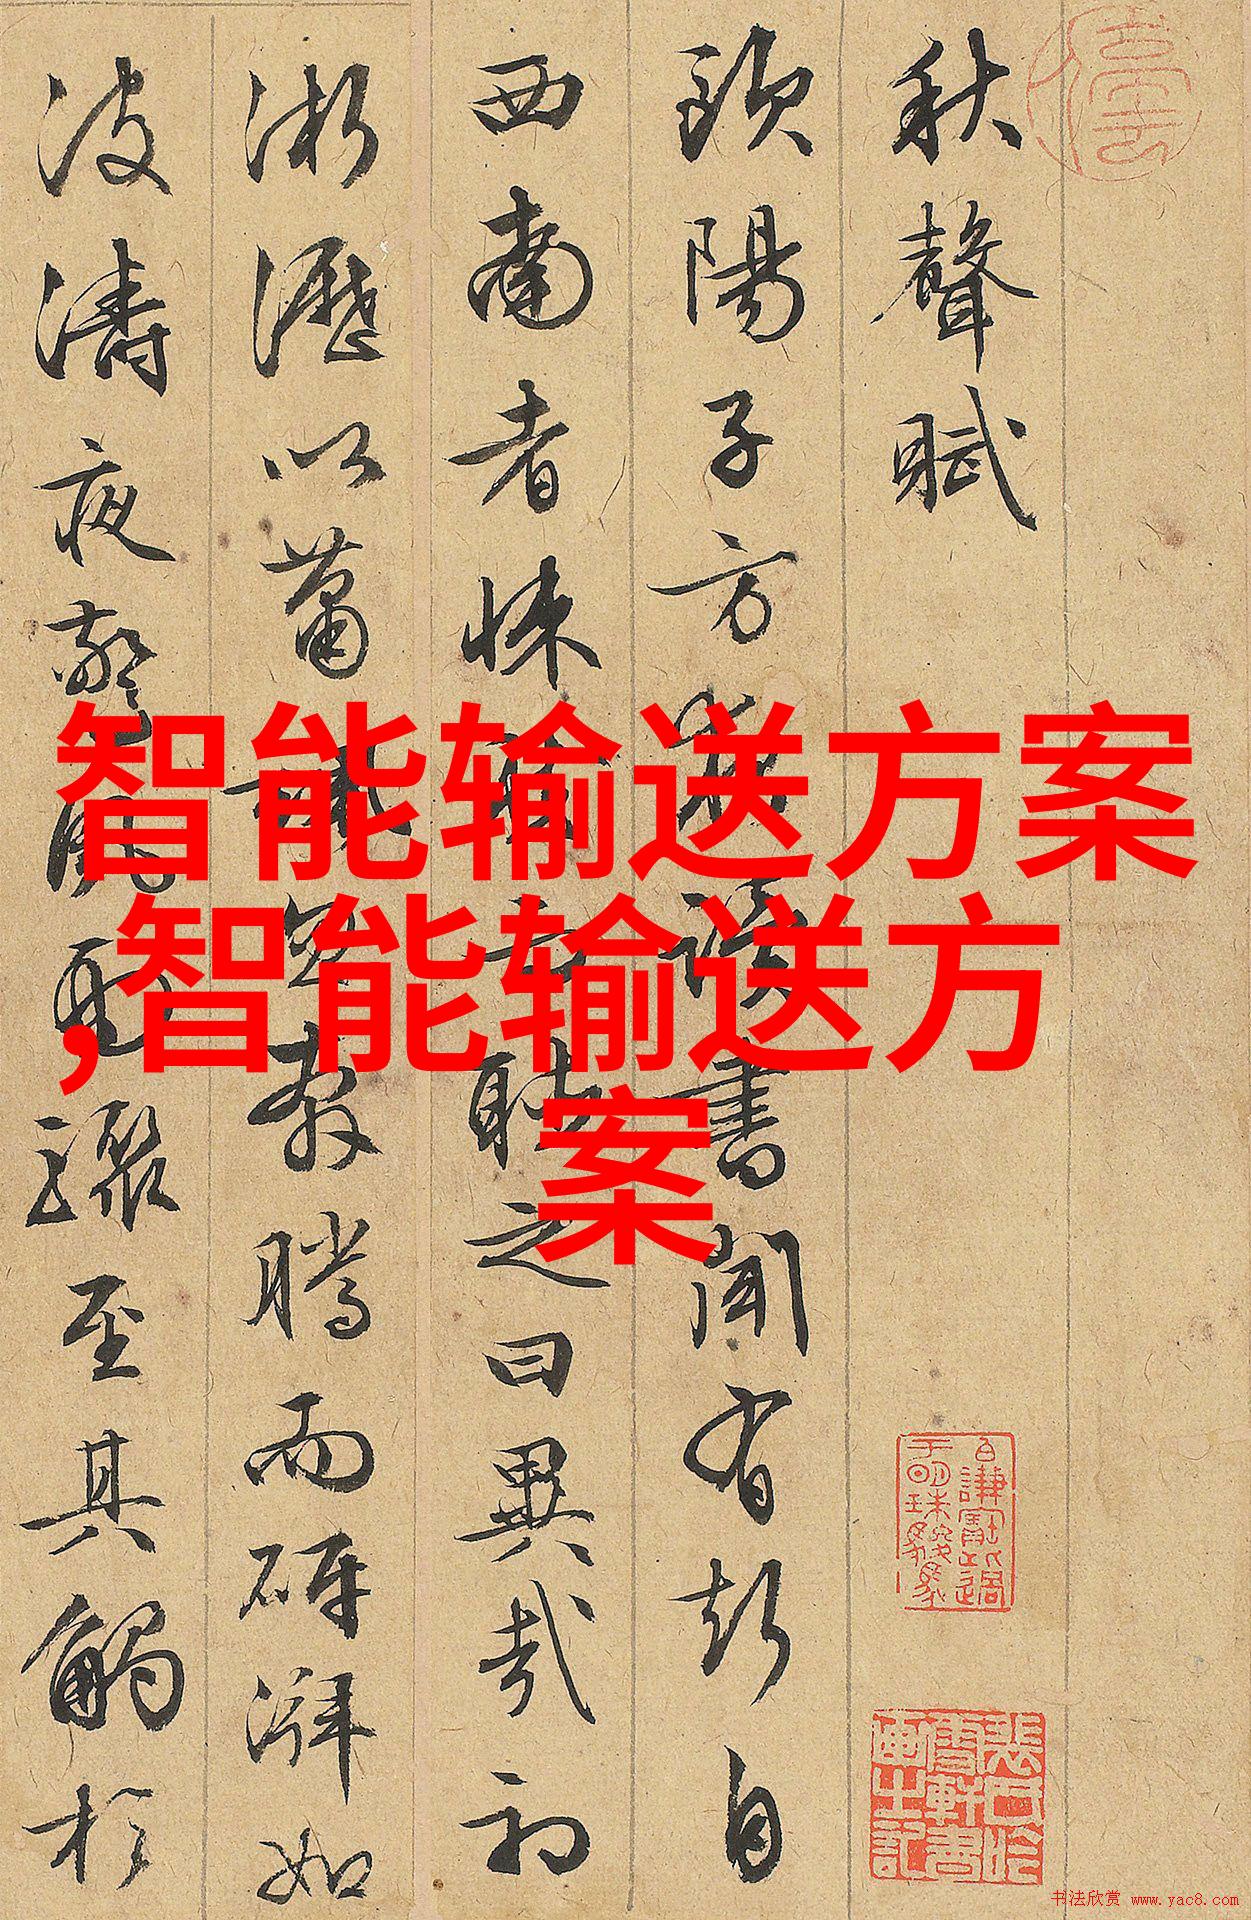 秋聲賦
歐陽子方夜讀書聞有聲自
西南者悚然而聽之曰異哉初
淅瀝以蕭颯忽奔騰而砰湃如
波濤夜驚風雨驟至其觸於
智能输送方案
,智能输送方
案
书法欣赏 www.yac8.com